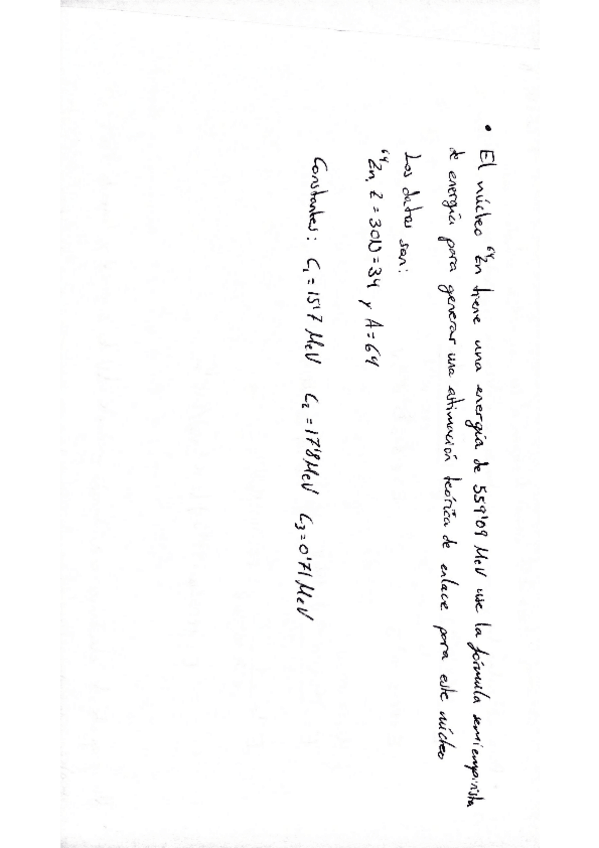 • El núcleo ⁶⁴Zn tiene una energía de 559'09 MeV use la fórmula semiempirista
de energía para generar una estimación teórica de enlace para este núcleo
Los datos son:
⁶⁴Zn, Z = 30 N = 34 y A = 64
Constantes: C₁ = 15'7 MeV C₂ = 17'8 MeV C₃ = 0'71 MeV